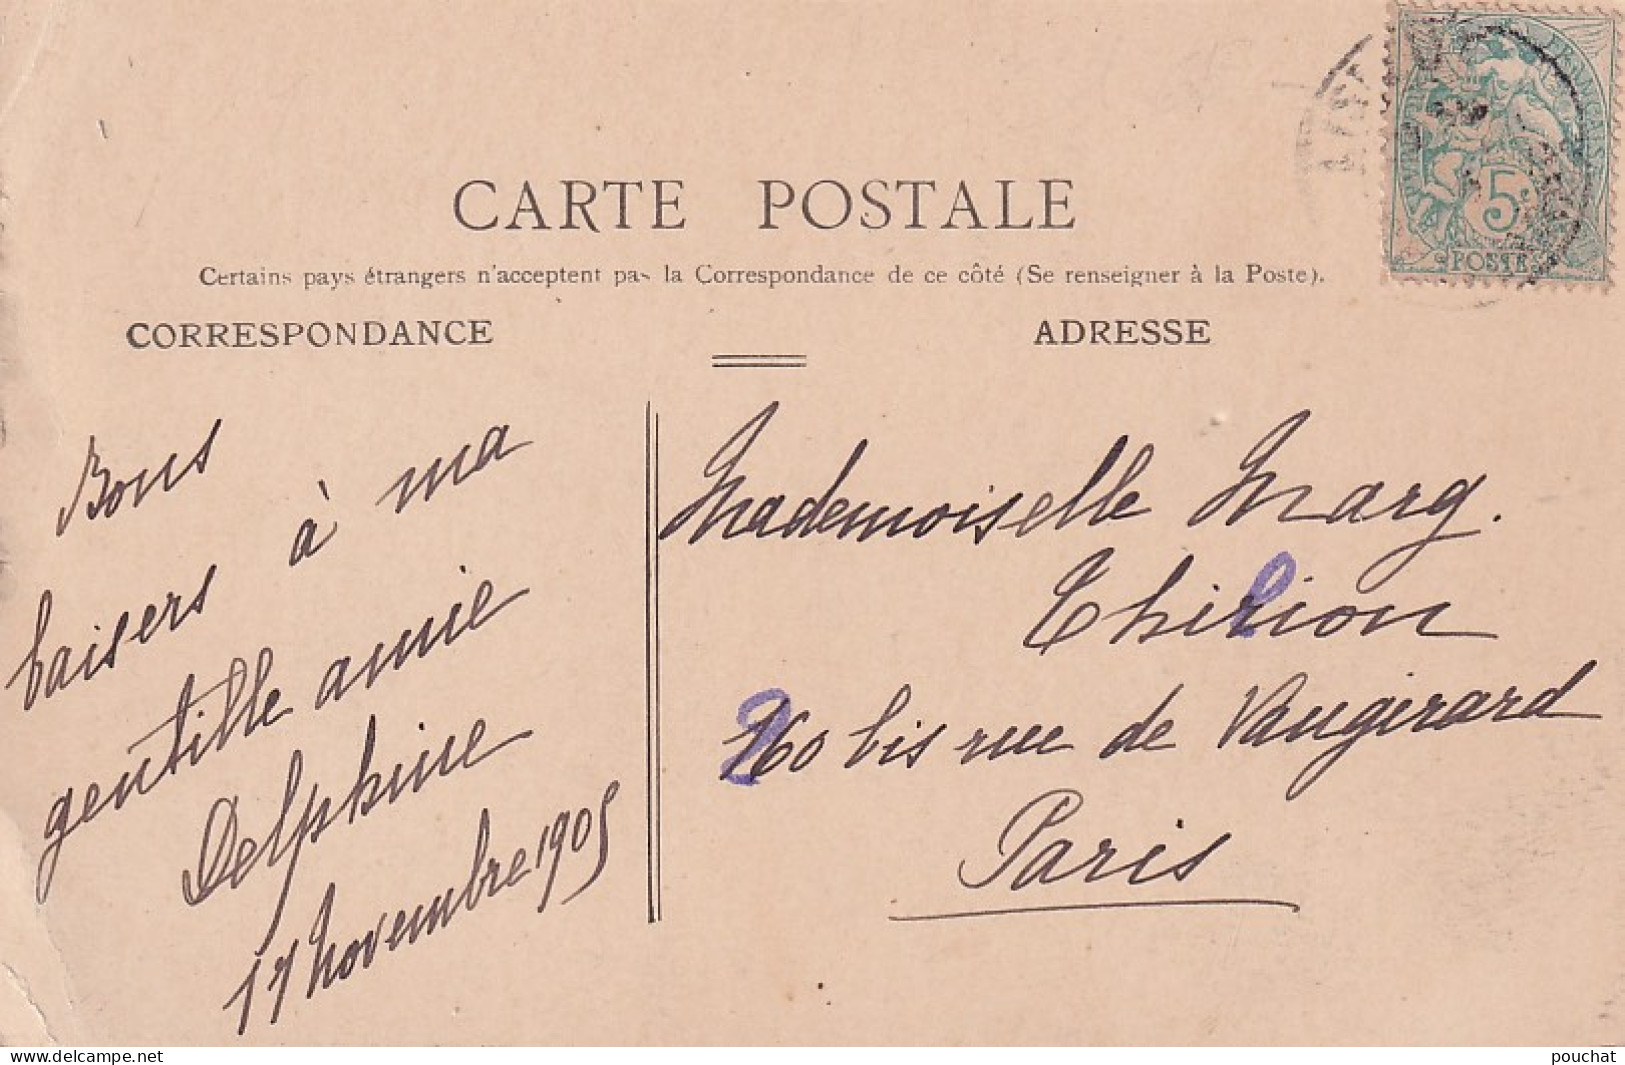 CARTE POSTALE
Certains pays étrangers n'acceptent pas la Correspondance de ce côté (Se renseigner à la Poste).
CORRESPONDANCE
ADRESSE
Bons
baisers à ma
gentille amie
Delphine
17 novembre 1905
Mademoiselle Marg.
Thirion
260 bis rue de Vaugirard
Paris
5c
POSTES
delcampe.net
pouchat